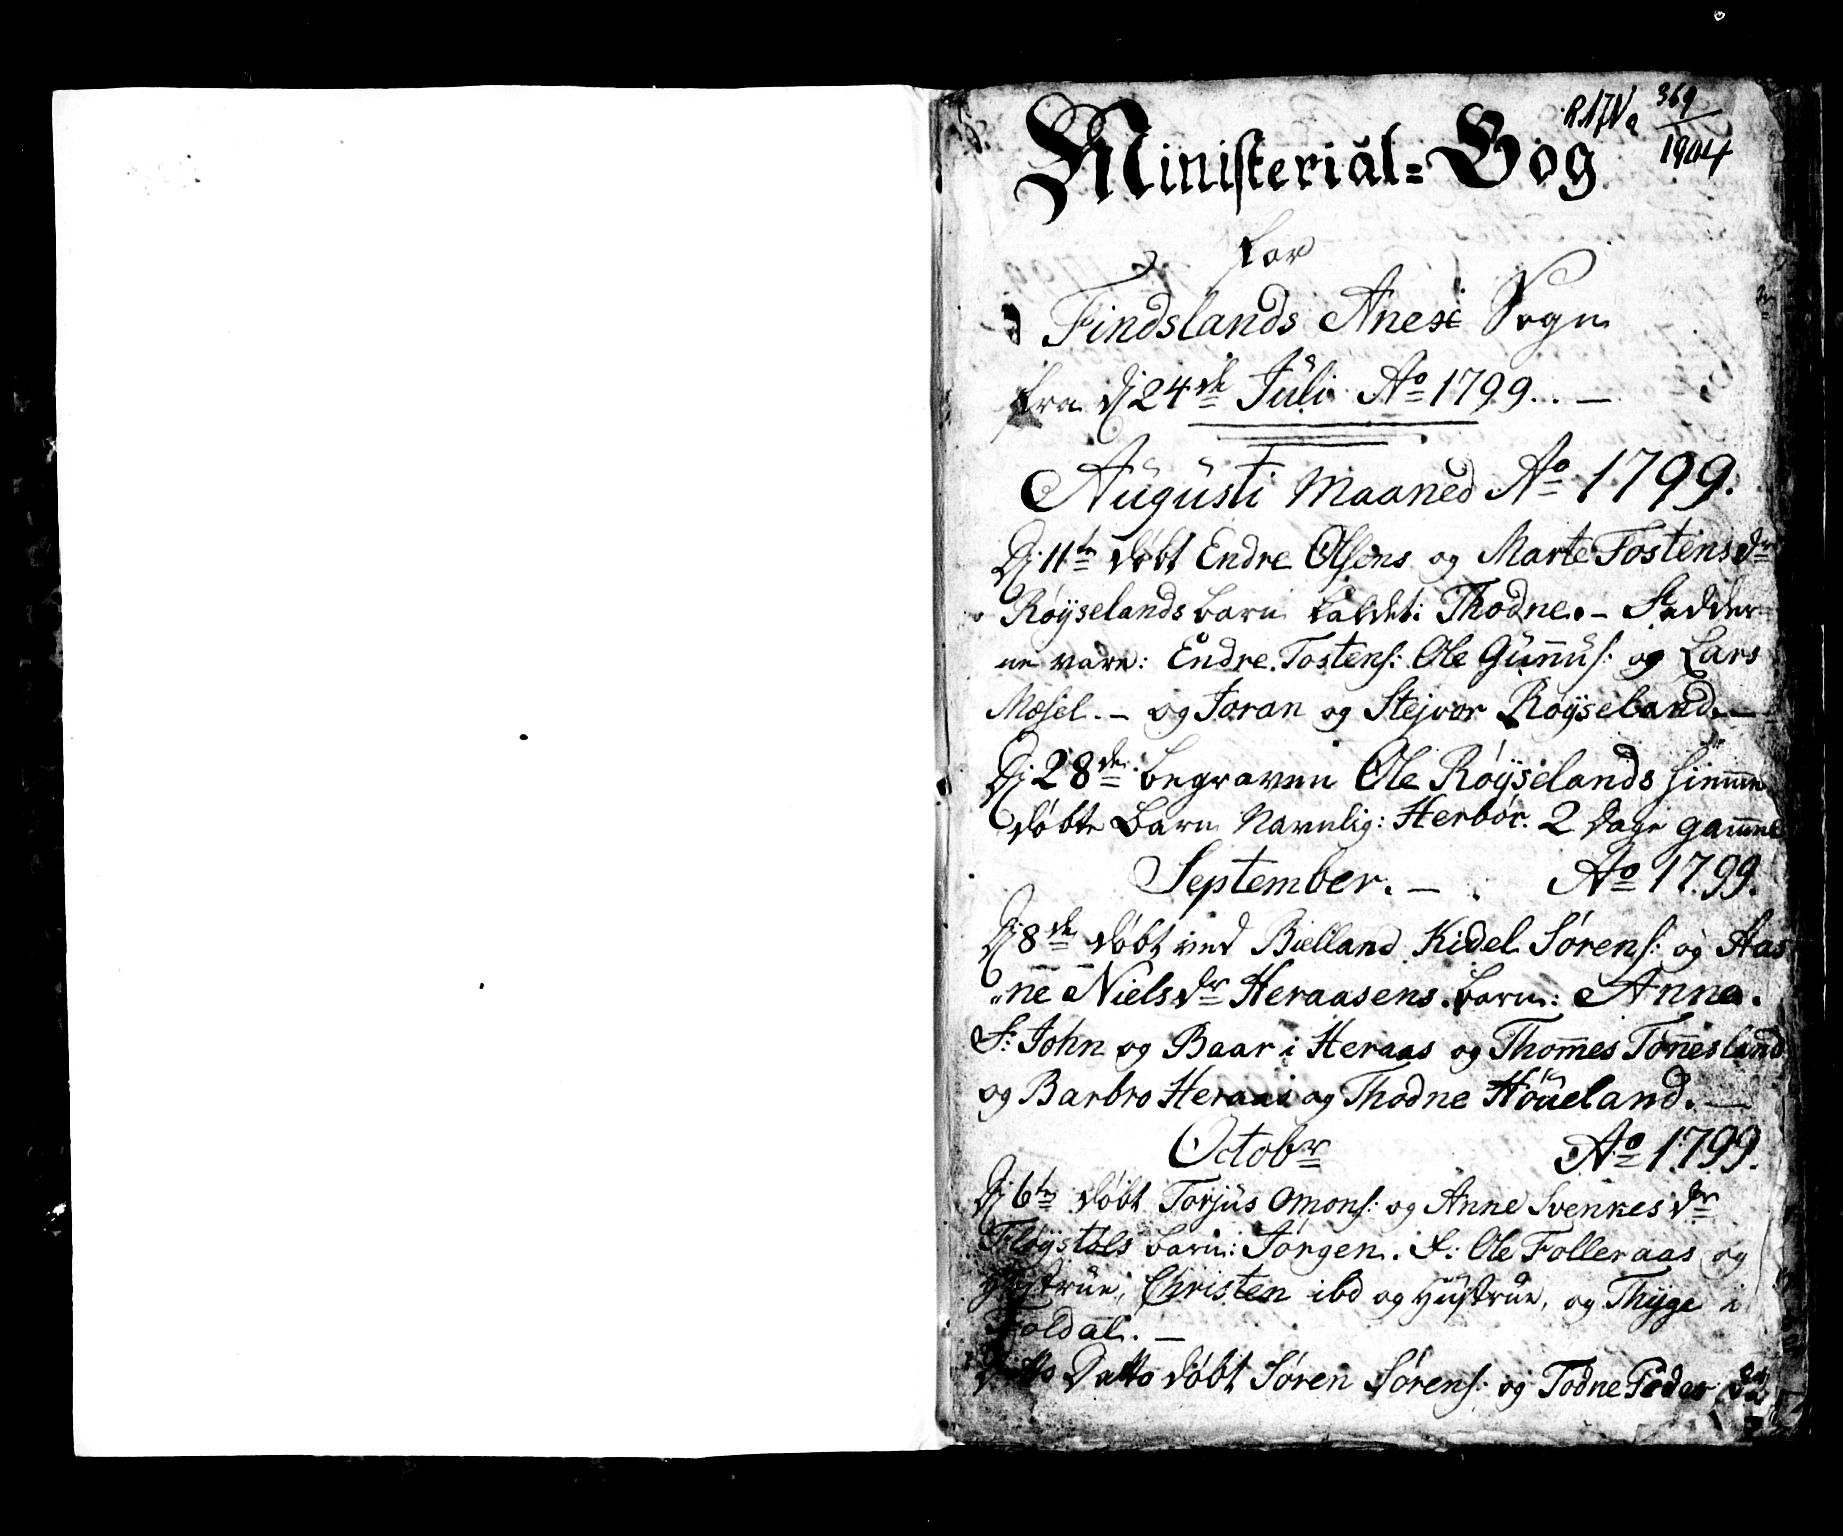 R 17 Na 369
1904
Ministerial=Bog
for
Findslands Anex Sogn
fra dj 24de Juli Ao 1799..—
Augusti Maaned Ao 1799.
Dj 11te døbt Endre Olsens og Marte Tostensdr
Røyselands barn kaldet: Thodne.- Fadder-
ne vare: Endre Tostens: Ole Gunnus: og Lars
Møsel.- og Joran og Stejvor Røyseland.-
Dj 28de begraven Ole Røyselands hiemme
døbte Barn Navnlig: Herbór. 2 dage gammel
September.— Ao 1799.
Dj 8de døbt ved Bielland Kidel Sørens: og Aas
"ne Nielsdr Heraasens barn: Anna.
F: John og Baar i Heraas og Thommes Tonnesland
og Barbro Heraas og Thodne Høüeland.—
Octobr Ao 1799.
Dj 6te døbt Torjus Omons: og Anne Svenkesdr
Fløystøls barn: Jørgen. F: Ole Folleraas og
Hustrue, Christen ibd og Hustrue, og Thyge i
Foldal.—
Ditto Datto døbt Søren Sørens: og Todne Peders dr